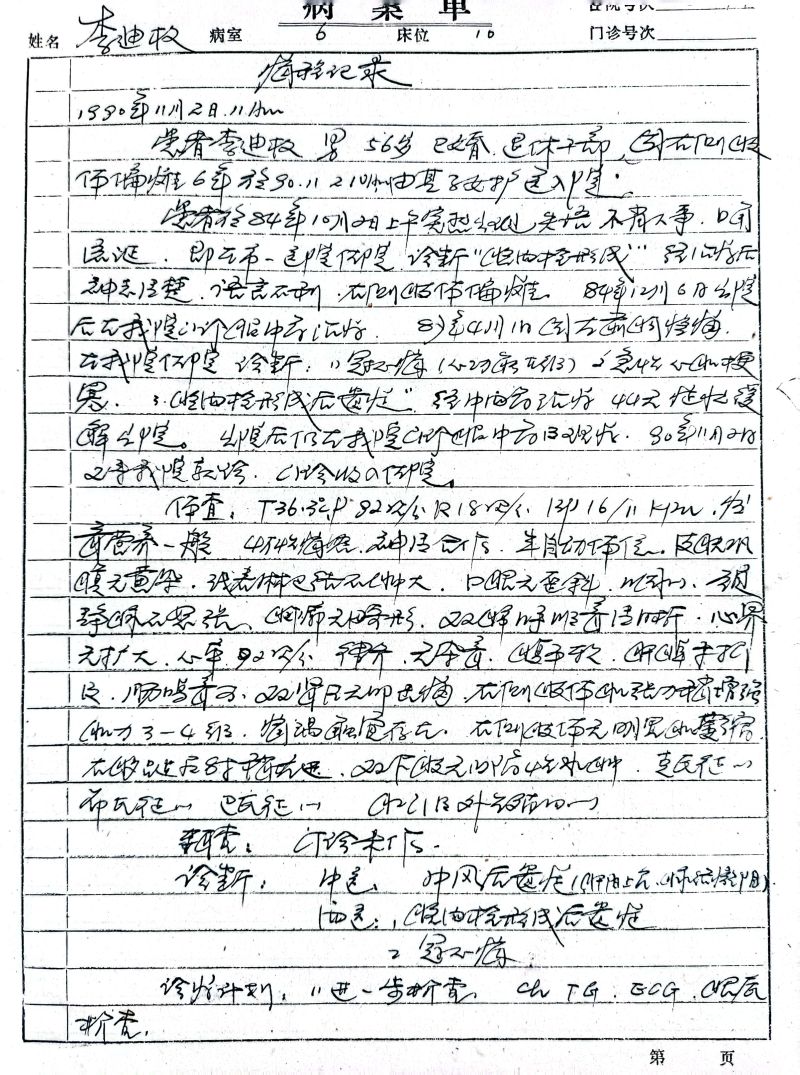 病案单
姓名 李迪枚 病室 6 床位 10 门诊号次
病程记录
1990年11月2日11Am
患者李迪枚 男 56岁 已婚 退休干部,因右侧肢
体偏瘫6年于90.11.2 10Am由其子女护送入院。
患者于84年10月2日上午突然出现失语 不省人事.口角
流涎.即在市一医院住院 诊断"脑血栓形成" 经治疗后
神志清楚,语言不利,右侧肢体偏瘫。84年12月6日出院
后在我院门诊服中药治疗. 年4月 因左胸 痛
在我院住院 诊断:1)冠心病(心功能Ⅱ级) 2.急性心肌梗
塞. 3.脑血栓形成后遗症" 经中西药治疗44天症状缓
解出院。出院后仍在我院门诊服中药 .90年11月2日
又来我院就诊.门诊收入住院。
体查:T36.3℃ P 82次/分 R 18次/分 BP 16/11 Kpa.发
育营养一般 慢性病容.神清合作.自动体位.皮肤巩
膜无黄染.浅表淋巴结不肿大.口眼无歪斜 .颈
静脉不怒张.胸廓无畸形.双肺呼吸音清晰.心界
无扩大.心率82次/分 律齐.无杂音.腹平软.肝脾未扪
及.肠鸣音可.双肾区无叩击痛.右侧肢体肌张力稍增强
肌力3-4级.痛温触觉存在.右侧肢体无明显肌萎缩.
双下肢无凹陷性水肿.克氏征(-)
布氏征(-) 巴氏征(-) 肛门及外生殖器(-)
辅查: 门诊未作.
诊断: 中医: 中风后遗症(肝阳上亢.脉络瘀阻)
西医:1.脑血栓形成后遗症
2 冠心病
诊疗计划:1)进一步检查. Ch TG. ECG.眼底
检查.
第 页